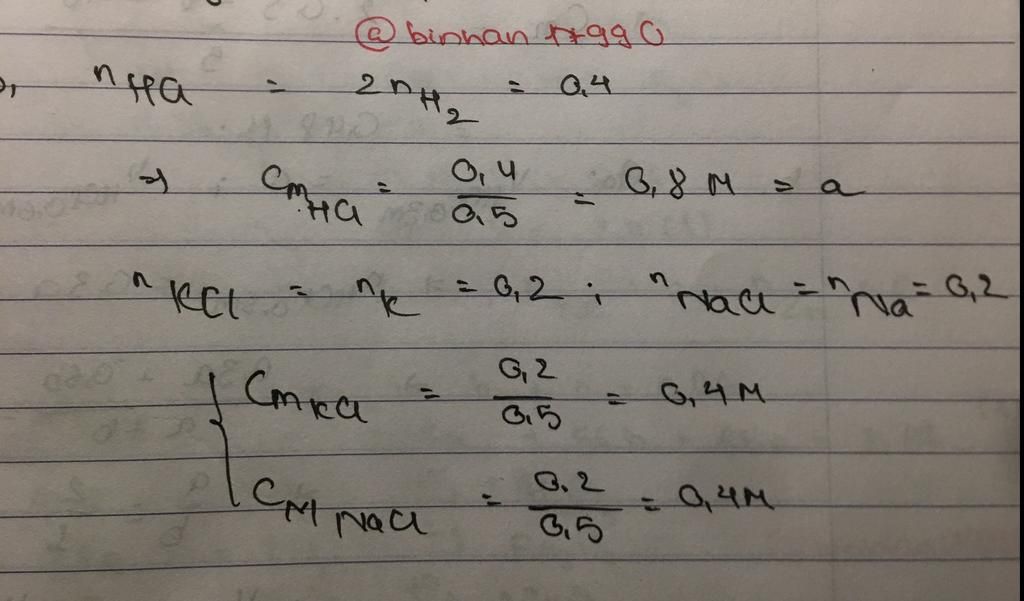 @binhan
n HCl = 2 n H2 = 0,4
=> CM HCl = 0,4/0,5 = 0,8 M = a
n KCl = n K = 0,2 ; n NaCl = n Na = 0,2
{ CM KCl = 0,2/0,5 = 0,4 M
CM NaCl = 0,2/0,5 = 0,4 M